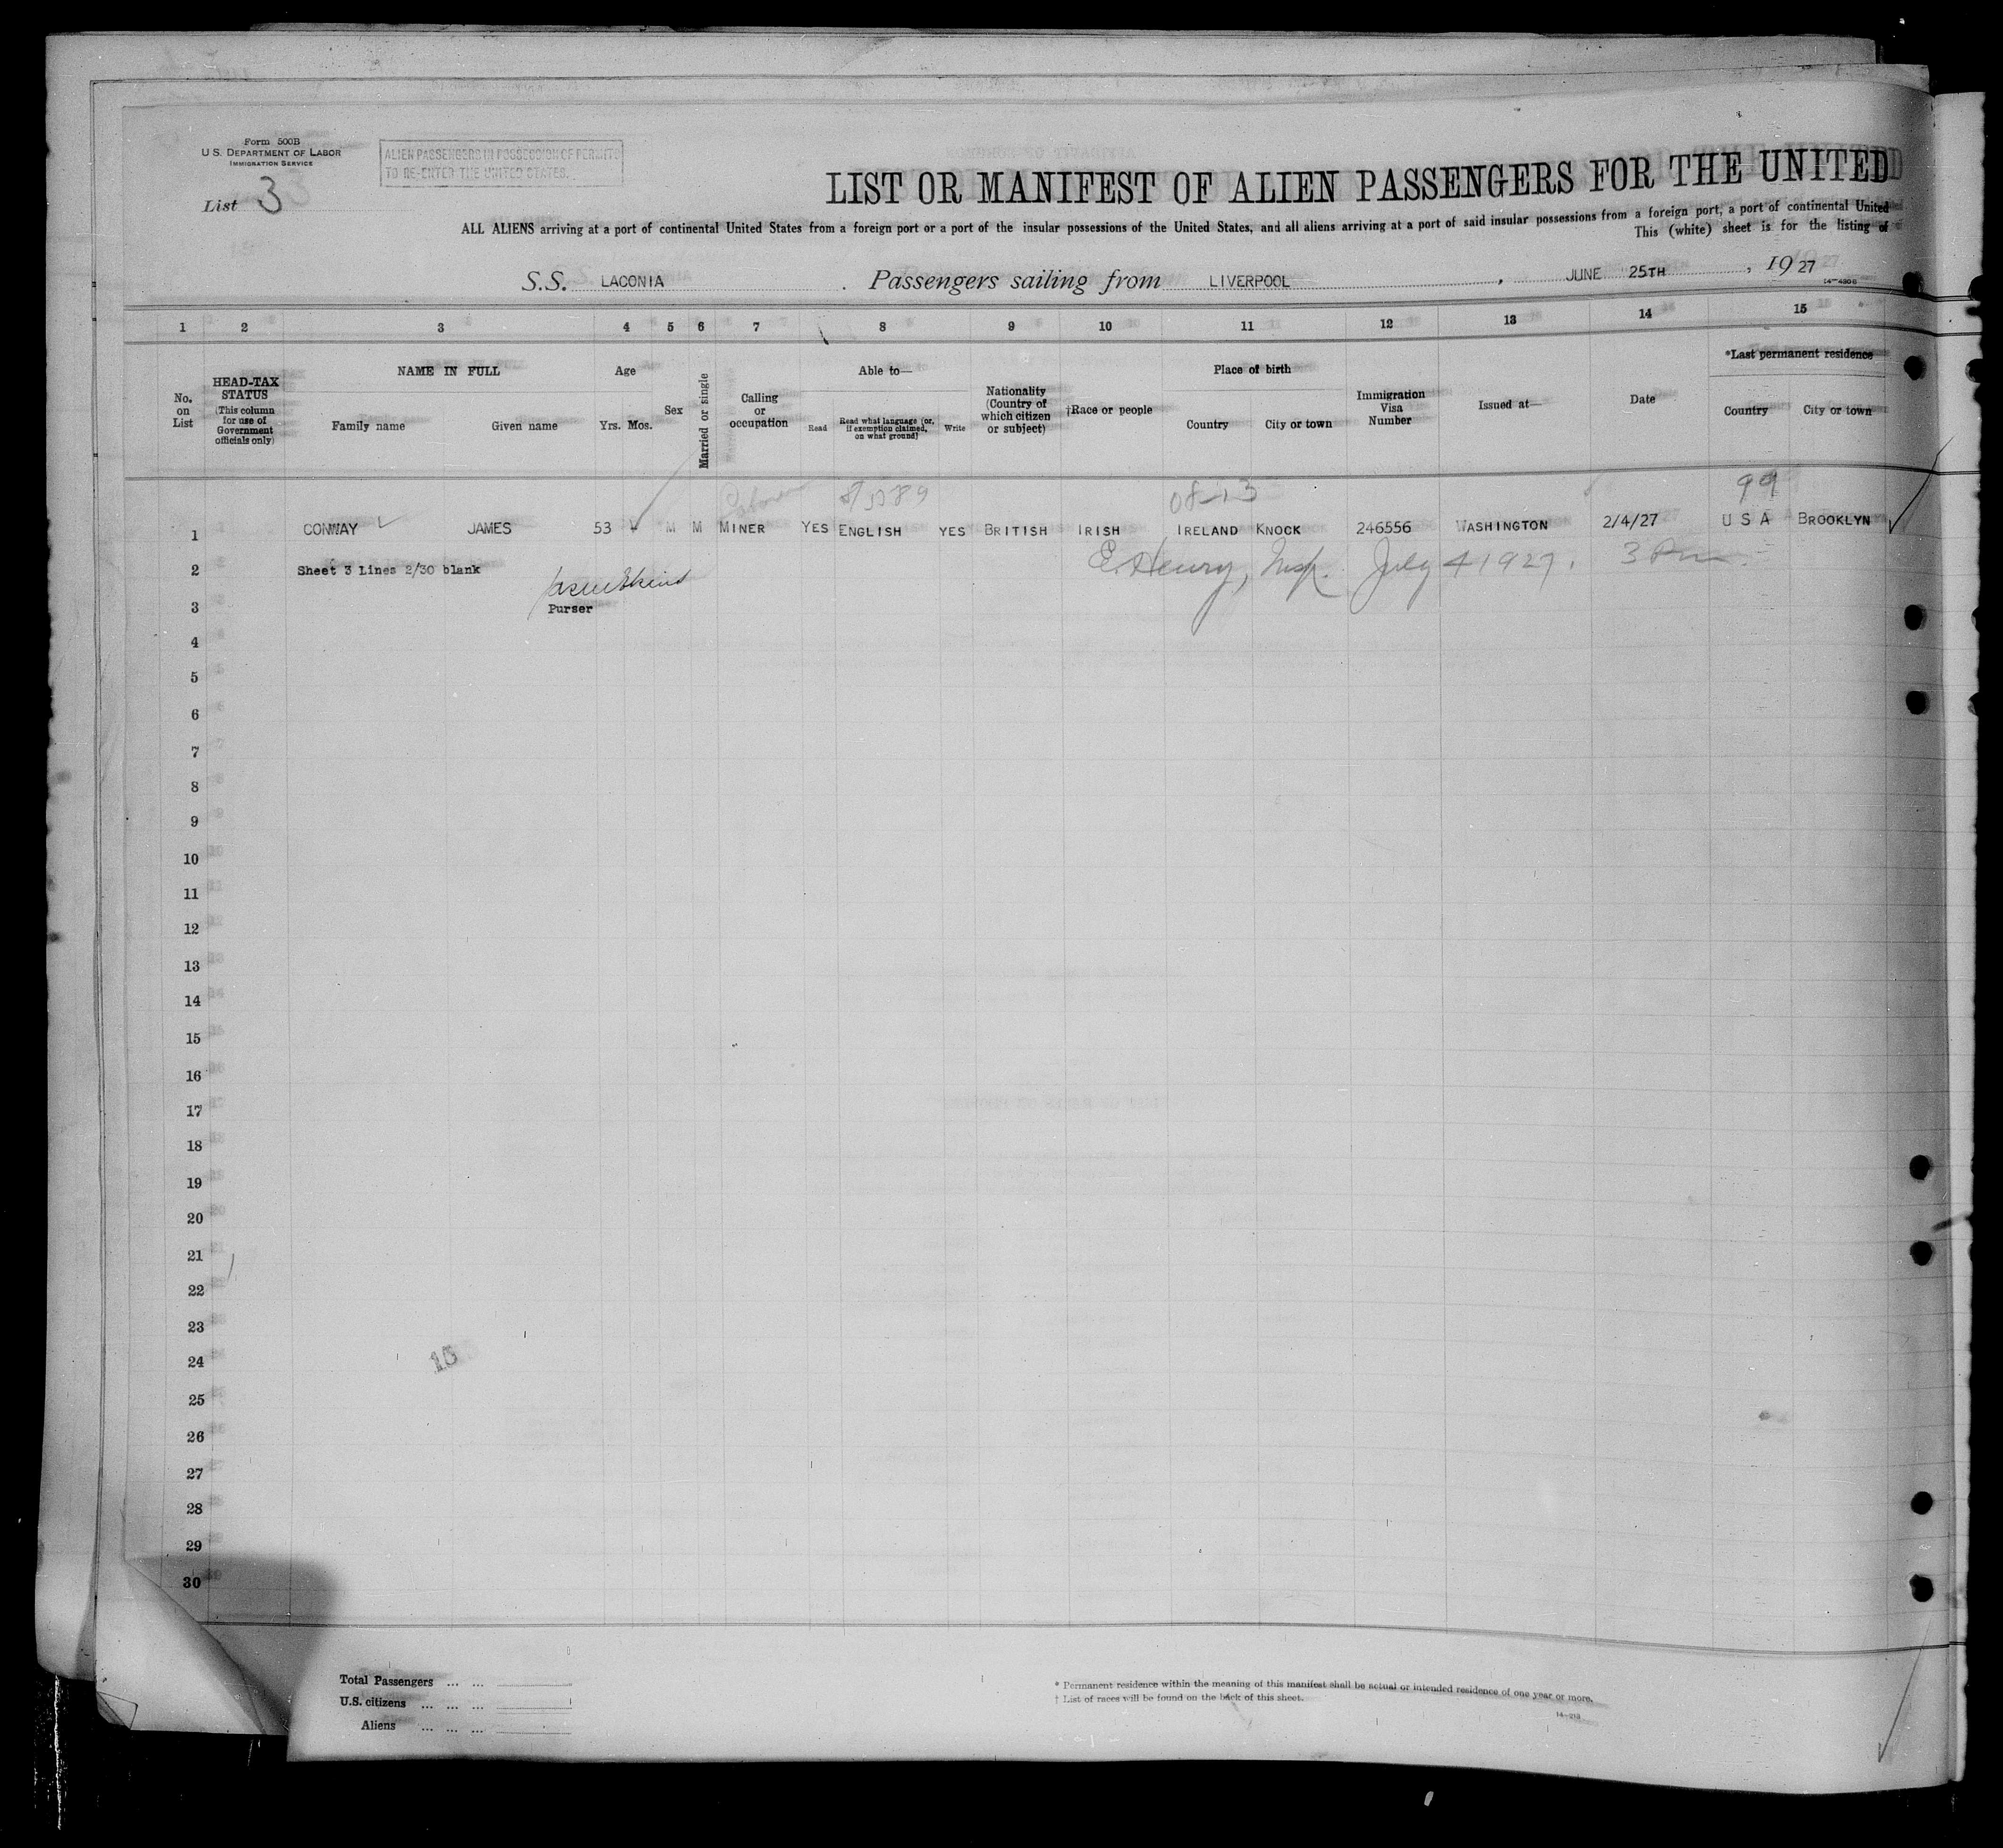 Form 500B
U.S. DEPARTMENT OF LABOR
IMMIGRATION SERVICE
ALIEN PASSENGERS IN POSSESSION OF PERMITS
TO RE-ENTER THE UNITED STATES.
List 3
LIST OR MANIFEST OF ALIEN PASSENGERS FOR THE UNITED
ALL ALIENS arriving at a port of continental United States from a foreign port or a port of the insular possessions of the United States, and all aliens arriving at a port of said insular possessions from a foreign port, a port of continental United
This (white) sheet is for the listing of
S.S. LACONIA . Passengers sailing from LIVERPOOL , JUNE 25TH , 1927
1 2 3 4 5 6 7 8 9 10 11 12 13 14 15
No. on List
HEAD-TAX STATUS (This column for use of Government officials only)
NAME IN FULL
Family name Given name
Age
Yrs. Mos.
Sex
Married or single
Calling or occupation
Able to—
Read
Read what language (or, if exemption claimed, on what ground)
Write
Nationality (Country of which citizen or subject)
†Race or people
Place of birth
Country City or town
Immigration Visa Number
Issued at—
Date
*Last permanent residence
Country City or town
08-13 99
1 CONWAY JAMES 53 M M MINER YES ENGLISH YES BRITISH IRISH IRELAND KNOCK 246556 WASHINGTON 2/4/27 U S A BROOKLYN
2 Sheet 3 Lines 2/30 blank E. Henry, Insp. July 4 1927. 3 Pm.
3 Purser
4
5
6
7
8
9
10
11
12
13
14
15
16
17
18
19
20
21
22
23
24
25
26
27
28
29
30
Total Passengers ... ...
U.S. citizens ... ... ...
Aliens ... ... ...
* Permanent residence within the meaning of this manifest shall be actual or intended residence of one year or more.
† List of races will be found on the back of this sheet.